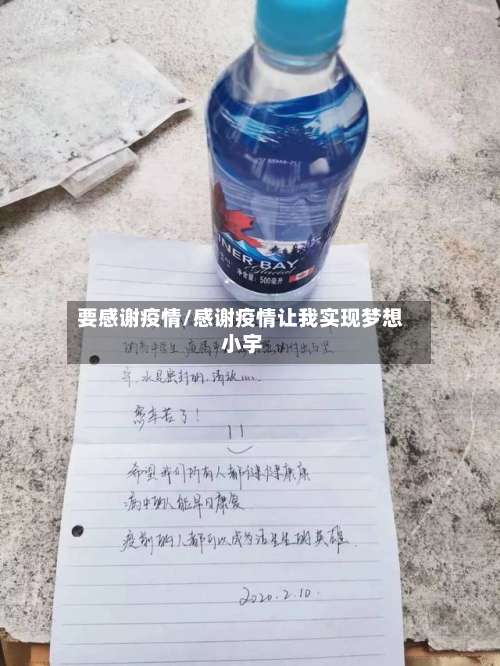 INNER BAY
Glacial
净含量：500毫升
要感谢疫情/感谢疫情让我实现梦想
小宇
的高中生
，水是密封的，请放心...
您辛苦了！
希望我们所有人都健健康康
病中的人能早日康复
疫前的人都可以成为活生生的英雄.
2020.2.10.